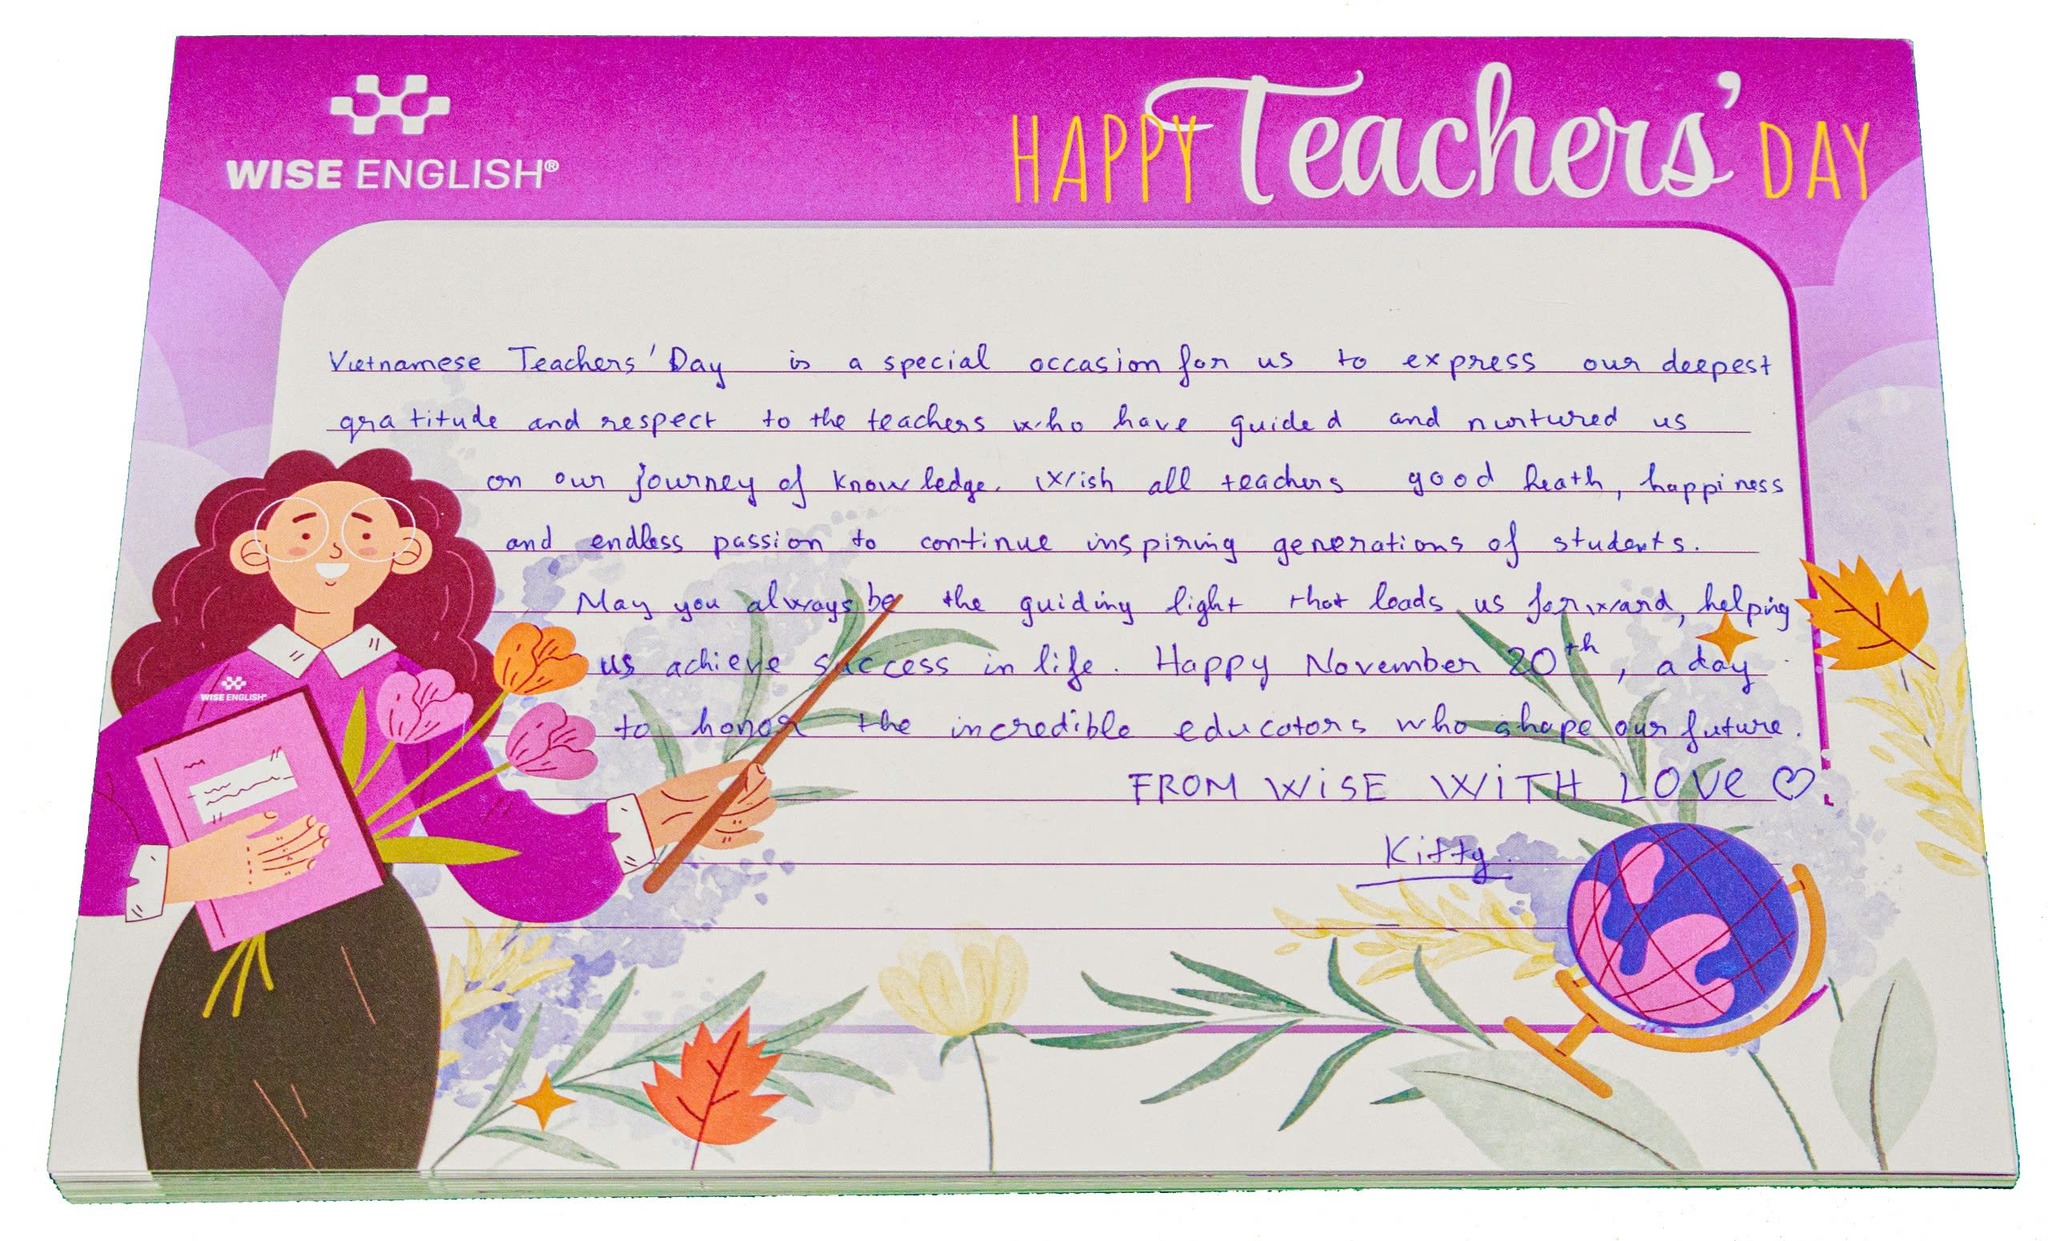 WISE ENGLISH®
HAPPY Teachers' DAY
Vietnamese Teachers' Day is a special occasion for us to express our deepest
gratitude and respect to the teachers who have guided and nurtured us
on our journey of knowledge. Wish all teachers good heath, happiness
and endless passion to continue inspiring generations of students.
May you always be the guiding light that leads us forward, helping
us achieve success in life. Happy November 20th, a day
to honor the incredible educators who shape our future.
FROM WiSE WiTH LOVE ♡
Kitty
WISE ENGLISH®